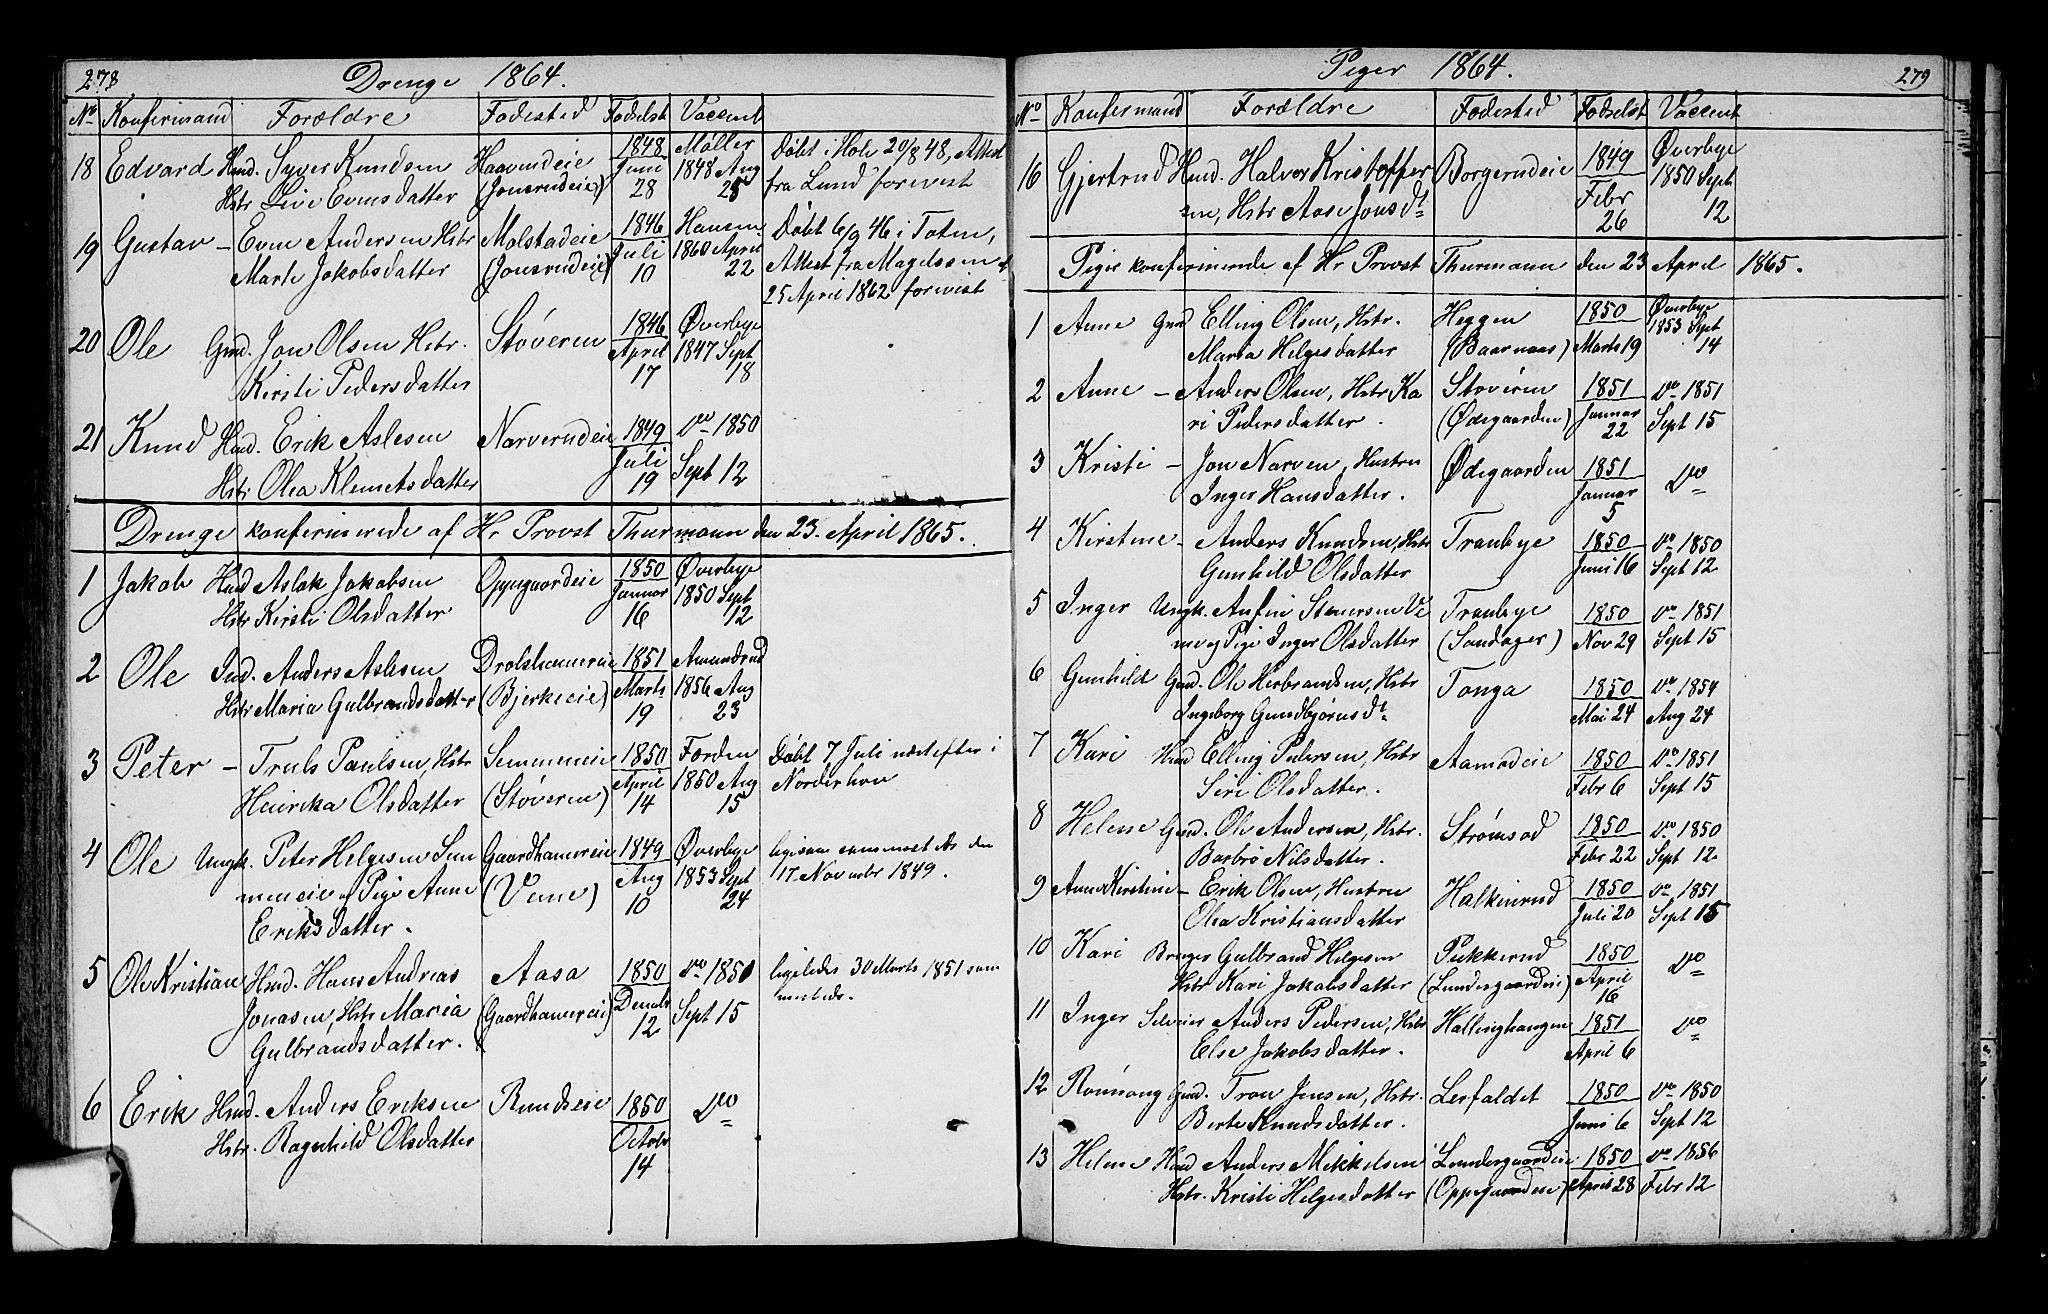 278 Drenge 1864.
No Konfirmand Forældre Fødested Fødselst Vaccent
18 Edvard Hmd. Syver Knudsen Haavendeie 1848 Møller Døbt i Hole 20/8 48, Attest
(Jonsrudeie) Juni 1848 Aug fra Lund forevist
Hstr Live Evensdatter 28 25
19 Gustav – Even Andersen Hstr Molstadeie 1846 Hansen Døbt 6/9 46 i Toten,
Marte Jakobsdatter (Jonsrudeie) Juli 1860 April Attest fra Magelssen
10 22 25 April 1862 forevist
20 Ole Gmd. Jon Olsen Hstr. Støveren 1846 Øverbye
Kirsti Pedersdatter April 1847 Sept
17 18
21 Knud Hmd. Erik Aslesen Narverudeie 1849 Do 1850
Hstr Olea Klemetsdatter Juli Sept 12
19
Drenge konfirmerede af Hr Provst Thurmann den 23. April 1865.
1 Jakob Hmd Aslak Jakobsen Oppegaardeie 1850 Øverbye
Hstr Kirsti Olsdatter Januar 1850 Sept
16 12
2 Ole Ind. Anders Aslesen Drolshammereie 1851 Amundrud
Hstr Maria Gulbrandsdatter (Bjerkeeie) Marts 1856 Aug
19 23
3 Peter – Truls Paulsen, Hstr Semmeneie 1850 Førden Døbt 7 Juli næstefter i
Henrika Olsdatter (Støveren) April 1850 Aug Norderhov
14 15
4 Ole Ungk. Peter Helgesen Sem Gaardhamereie 1849 Øverbye ligesaa sammesteds den
meneie og Pige Anne (Veme) Aug 1853 Sept 17 Novembr 1849.
Eriksdatter. 10 24
5 Ole Kristian Hmd. Hans Andreas Aasa 1850 Do 1851 ligeledes 30 Marts 1851 sam
Jonasen, Hstr Maria (Gaardhamereie) Decmbr Sept 15 mesteds.
Gulbrandsdatter. 12
6 Erik Hmd. Anders Eriksen Rundseie 1850 Do
Hstr. Ragnhild Olsdatter Octobr
14
Piger 1864. 279
No Konfermand Forældre Fødested Fødselst Vaccent
16 Gjertrud Hmd. Halvor Kristoffer Borgerudeie 1849 Øverbye
sen, Hstr Aase Jonsdt. Febr 1850 Sept
26 12
Piger konfirmerede af Hr Provst Thurmann den 23 April 1865.
1 Anne Gmd Elling Olsen, Hstr. Heggen 1850 Øverbye
Maria Helgesdatter (Baarnaas) Marts 19 1853 Sept
14
2 Anne – Anders Olsen, Hstr Ka Støveren 1851 Do 1851
ri Pedersdatter. (Ødegaarden) Januar Sept 15
22
3 Kristi – Jon Narven, Hustru Ødegaarden 1851 Do
Inger Hansdatter. Januar
5
4 Kirstine – Anders Knudsen, Hstr Tranbye 1850 Do 1850
Gunhild Olsdatter Juni 16 Sept 12
5 Inger Ungk. Anfin Stenersen Ve Tranbye 1850 Do 1851
me og Pige Inger Olsdatter (Sandager) Nov 29 Sept 15
6 Gunhild Gmd. Ole Herbrandsen, Hstr Tonga 1850 Do 1854
Ingeborg Gundbjørnsdt. Mai 24 Aug 24
7 Kari Hmd Elling Pedersen, Hstr Aamodeie 1850 Do 1851
Siri Olsdatter. Febr 6 Sept 15
8 Helene Gmd. Ole Andersen, Hstr. Strømsod 1850 Do 1850
Barbro Nilsdatter. Febr 22 Sept 12
9 Anne Kirstine – Erik Olsen, Hustru Halkinrud 1850 Do 1851
Olea Kristiansdatter Juli 20 Sept 15
10 Kari Bruger Gulbrand Helgesen Pukkerud 1850 Do
Hstr Kari Jakobsdatter (Lundergaardeie) April
16
11 Inger Selveier Anders Pedersen, Hstr Hallinghaugen 1851 Do
Else Jakobsdatter. April 6
12 Rønnoug Gmd. Tron Jensen, Hstr. Lerfaldet 1850 Do 1850
Berte Knudsdatter. Juni 6 Sept 12
13 Helene Hmd Anders Mikkelsen Lundergaardeie 1850 Do 1856
Hstr. Kristi Helgesdatter (Oppegaardeie) April 28 Febr 12